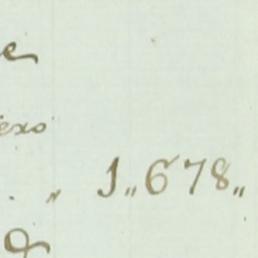 e
exo
. „ 1„678„